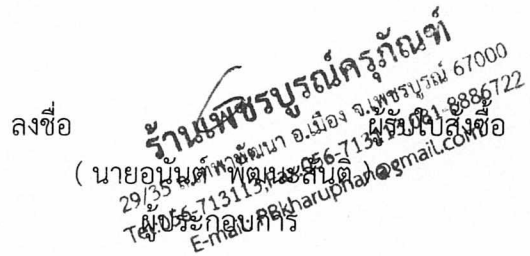 ลงชื่อ ผู้รับใบสั่งซื้อ
( นายอนันต์ พัฒนะสันติ )
ผู้ประกอบการ
ร้านเพชรบูรณ์ครุภัณฑ์
29/35 อ.เมือง จ.เพชรบูรณ์ 67000
Tel. 056-713113, 056-71311 081-8886722
E-mail: PBkharuphan@gmail.com